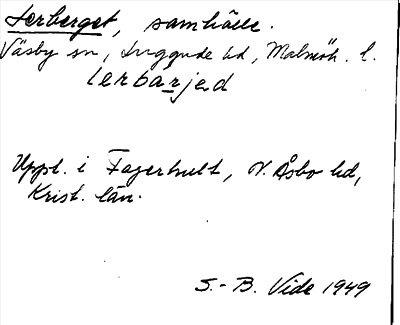 Lerberget, samhälle.
Väsby sn, Luggude hd, Malmöh. l.
lerbarjad
Uppt. i Fagerhult, N. Åsbo hd,
Krist. län.
S.-B. Vide 1949